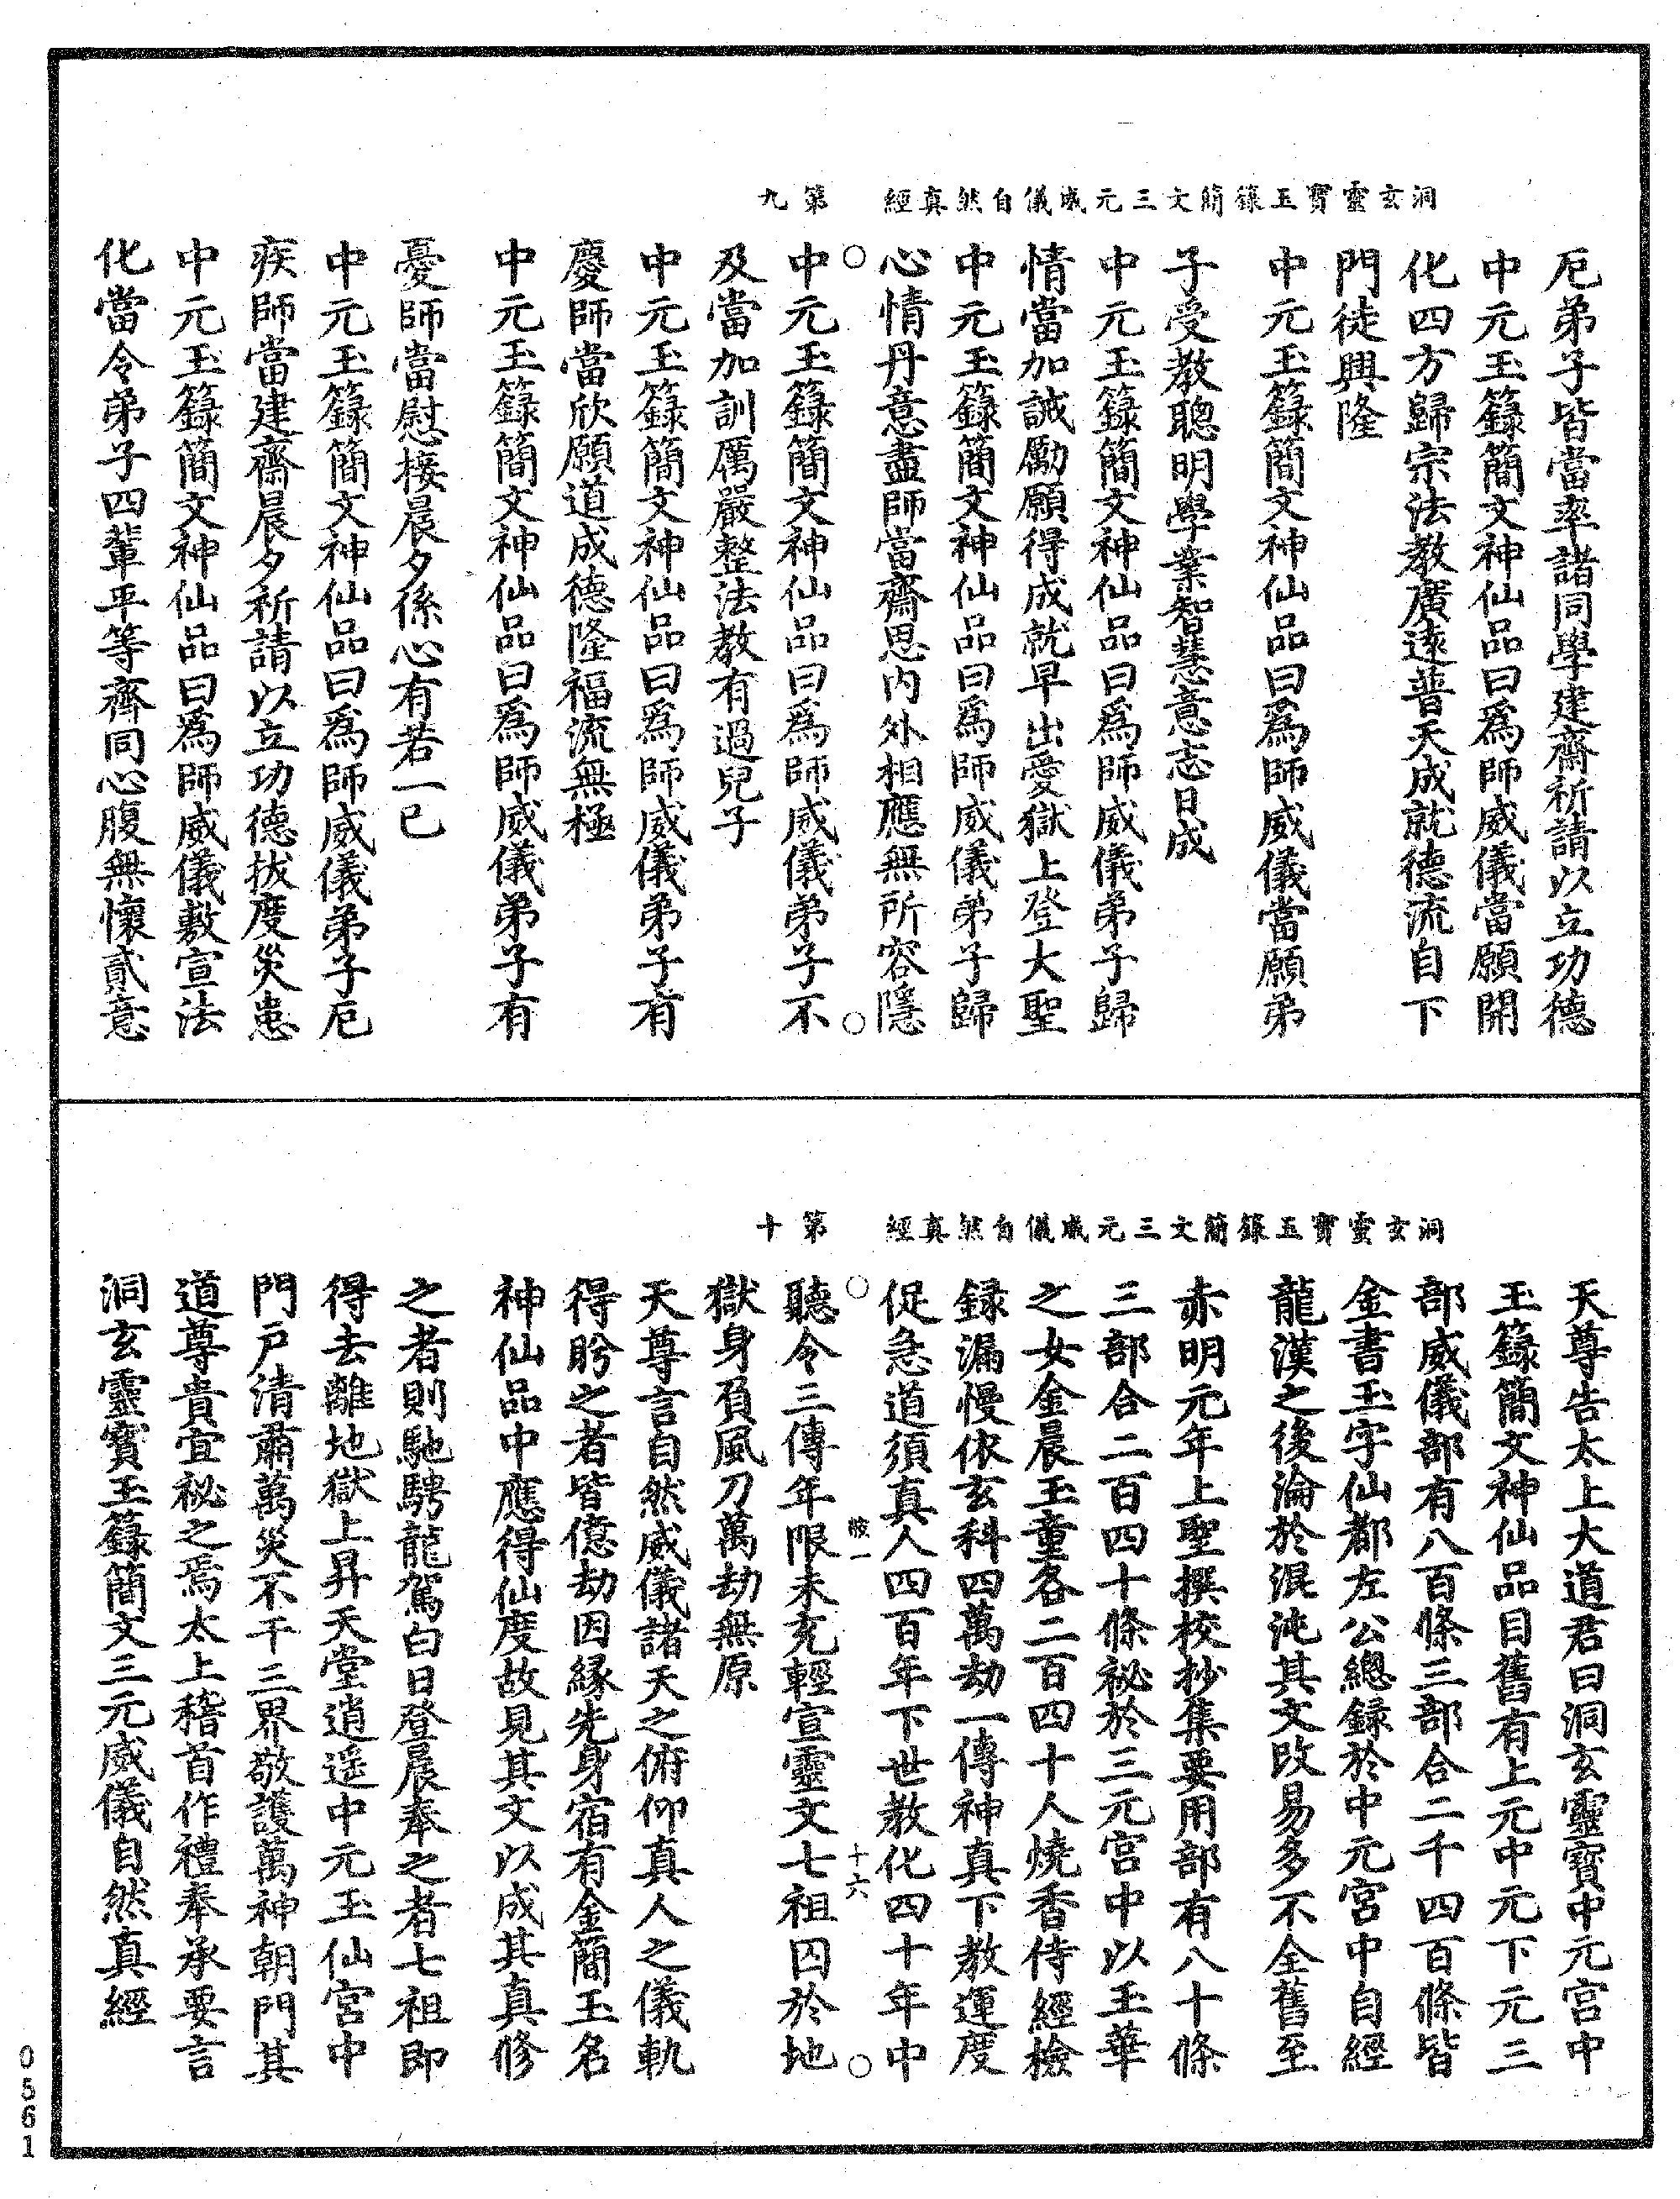 洞玄靈寶玉籙簡文三元威儀自然真經　第九
厄弟子皆當率諸同學建齋祈請以立功德
中元玉籙簡文神仙品曰爲師威儀當願開
化四方歸宗法教廣遠普天成就德流自下
門徒興隆
中元玉籙簡文神仙品曰爲師威儀當願弟
子受教聰明學業智慧意志日成
中元玉籙簡文神仙品曰爲師威儀弟子歸
情當加誡勵願得成就早出愛獄上登大聖
中元玉籙簡文神仙品曰爲師威儀弟子歸
心情丹意盡師當齋思内外相應無所容隱
中元玉籙簡文神仙品曰爲師威儀弟子不
及當加訓厲嚴整法教有過兒子
中元玉籙簡文神仙品曰爲師威儀弟子有
慶師當欣願道成德隆福流無極
中元玉籙簡文神仙品曰爲師威儀弟子有
憂師當慰接晨夕係心有若一己
中元玉籙簡文神仙品曰爲師威儀弟子厄
疾師當建齋晨夕祈請以立功德拔度災患
中元玉籙簡文神仙品曰爲師威儀敷宣法
化當令弟子四輩平等齊同心腹無懷貳意
洞玄靈寶玉籙簡文三元威儀自然真經　第十
天尊告太上大道君曰洞玄靈寶中元宫中
玉籙簡文神仙品目舊有上元中元下元三
部威儀部有八百條三部合二千四百條皆
金書玉字仙都左公總録於中元宫中自經
龍漢之後淪於混沌其文改易多不全舊至
赤明元年上聖撰校抄集要用部有八十條
三部合二百四十條祕於三元宫中以玉華
之女金晨玉童各二百四十人燒香侍經檢
録漏慢依玄科四萬劫一傳神真下教運度
促急道須真人四百年下世教化四十年中
一　十六
聽令三傳年限未充輕宣靈文七祖囚於地
獄身負風刀萬劫無原
天尊言自然威儀諸天之俯仰真人之儀軌
得盻之者皆億劫因緣先身宿有金簡玉名
神仙品中應得仙度故見其文以成其真修
之者則馳騁龍駕白日登晨奉之者七祖即
得去離地獄上昇天堂逍遥中元玉仙宫中
門户清肅萬災不干三界敬護萬神朝門其
道尊貴宜祕之焉太上稽首作禮奉承要言
洞玄靈寶玉籙簡文三元威儀自然真經
0561